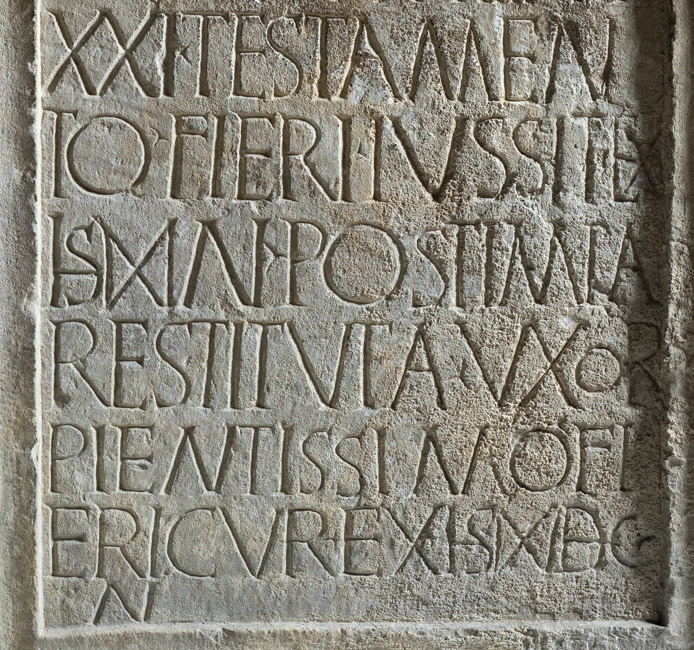 XXI·TESTAMEN
TO·FIERI·IVSSIT·EX
HSXIN·POSTIMPA
RESTITVTA·VXOR
PIENTISSIMOFI
ERICVR·EXHSXDC
N